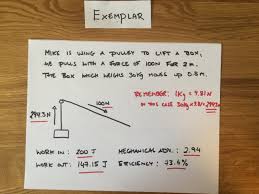 EXEMPLAR
MIKE IS USING A PULLEY TO LIFT A BOX,
HE PULLS WITH A FORCE OF 100N FOR 2m.
THE BOX WHICH WEIGHS 30KG MOVES UP 0.5m.
REMEMBER: 1Kg = 9.81N
IN THIS CASE 30Kg × 9.81 = 294.3N
100N
294.3N
WORK IN: 200 J
MECHANICAL ADV.: 2.94
WORK OUT: 147.15 J
EFFICIENCY: 73.6%